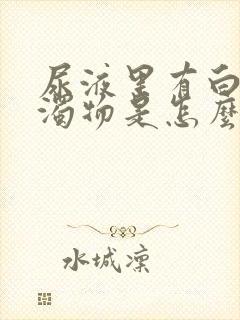 尿液里有白
濁物是怎麼
水城凜